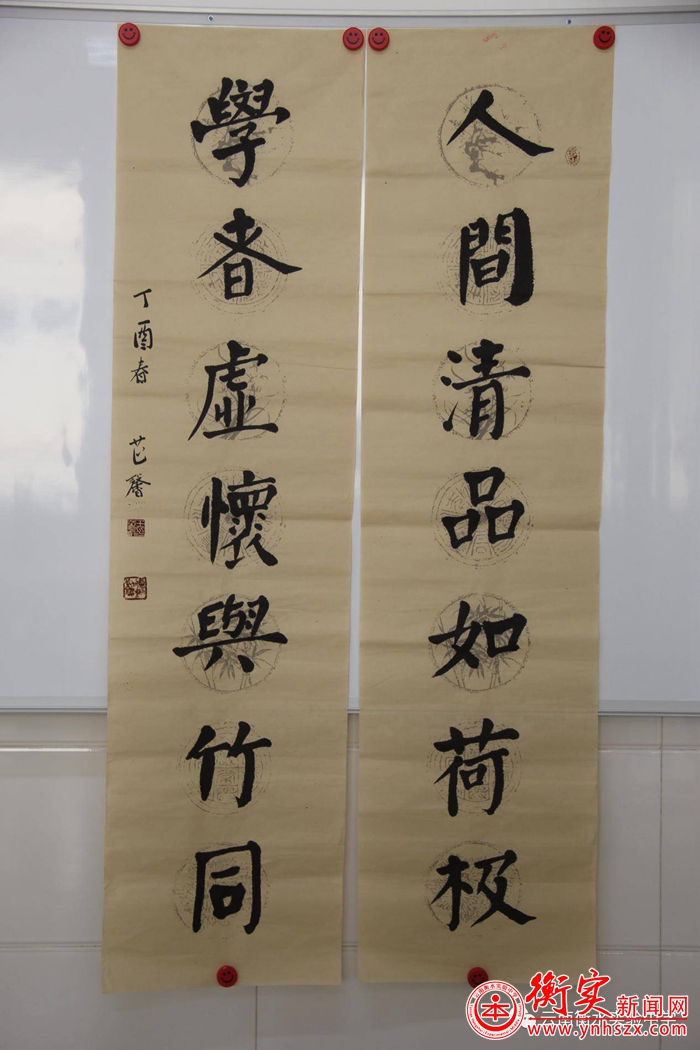 人間清品如荷极
學者虛懷與竹同
丁酉春 芷馨
衡实新闻网
www.ynhszx.com